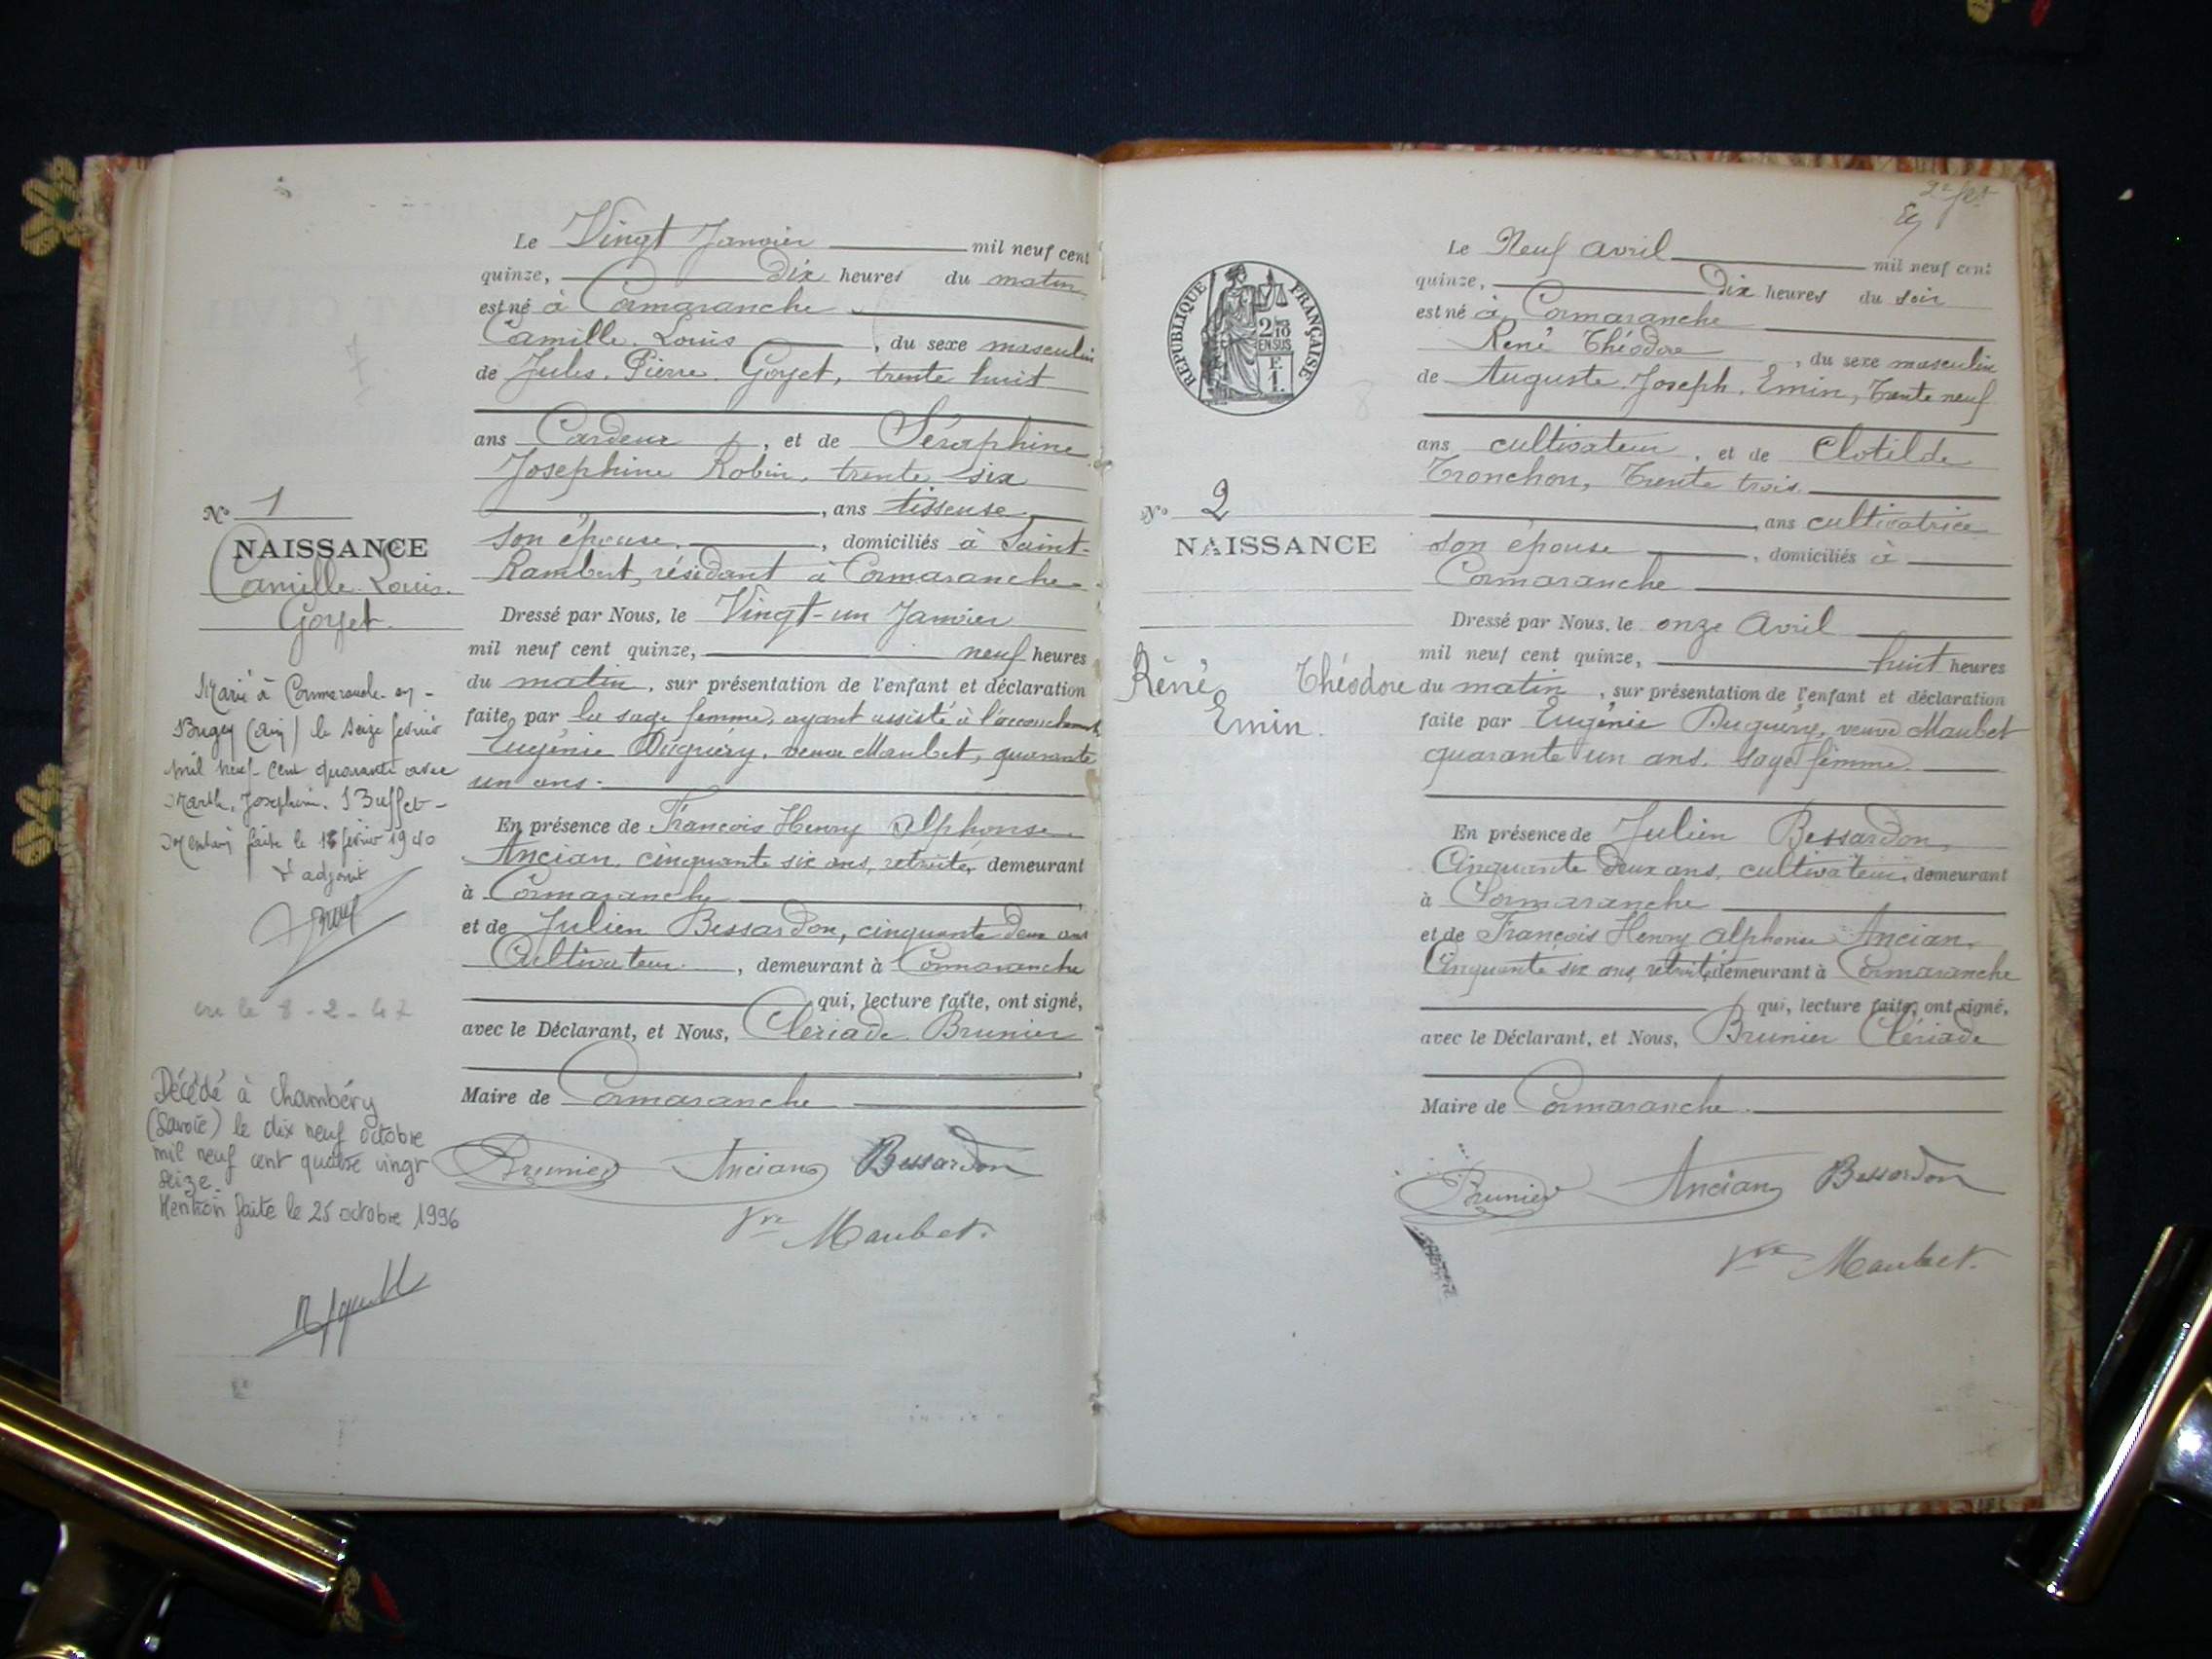 Le Vingt Janvier mil neuf cent
quinze, Dix heures du matin
est né à Cormaranche
Camille Louis, du sexe masculin
de Jules Pierre Goyet, trente huit
ans Cardeur, et de Séraphine
Josephine Robin, trente six
, ans tisseuse
son épouse, domiciliés à Saint-
Rambert, résidant à Cormaranche
Dressé par Nous, le Vingt-un Janvier
mil neuf cent quinze, neuf heures
du matin, sur présentation de l'enfant et déclaration
faite par la sage femme, ayant assisté à l'accouchement
Eugénie Duguéry, veuve Maubet, quarante
un ans.
En présence de François Henry Alphonse
Ancian, cinquante six ans, retraité, demeurant
à Cormaranche,
et de Julien Bessardon, cinquante deux ans
Cultivateur, demeurant à Cormaranche
qui, lecture faite, ont signé,
avec le Déclarant, et Nous, Clériade Brunier
Maire de Cormaranche
Brunier Ancian Bessardon
Vve Maubet.
N° 1
NAISSANCE
Camille Louis
Goyet.
Marié à Cormaranche-en-
Bugey (Ain) le seize février
mil neuf cent quarante avec
Marthe, Joséphine Buffet-
Mention faite le février 1940
L'adjoint
vu le 8-2-47
Décédé à Chambéry
(Savoie) le dix neuf octobre
mil neuf cent quatre vingt
seize.
Mention faite le 25 octobre 1996
2e ft
RÉPUBLIQUE FRANÇAISE
2/10
EN SUS
F.
1.
Le Neuf Avril mil neuf cent
quinze, Dix heures du soir
est né à Cormaranche
René Théodore, du sexe masculin
de Auguste Joseph Emin, Trente neuf
ans cultivateur, et de Clotilde
Tronchon, Trente trois
, ans cultivatrice
son épouse, domiciliés à
Cormaranche
Dressé par Nous, le onze Avril
mil neuf cent quinze, huit heures
du matin, sur présentation de l'enfant et déclaration
faite par Eugénie Duguéry, veuve Maubet
quarante un ans, sage femme
En présence de Julien Bessardon,
Cinquante deux ans, cultivateur, demeurant
à Cormaranche
et de François Henry Alphonse Ancian,
Cinquante six ans, retraité, demeurant à Cormaranche
qui, lecture faite, ont signé,
avec le Déclarant, et Nous, Brunier Clériade
Maire de Cormaranche
Brunier Ancian Bessardon
Vve Maubet.
N° 2
NAISSANCE
René Théodore
Emin.